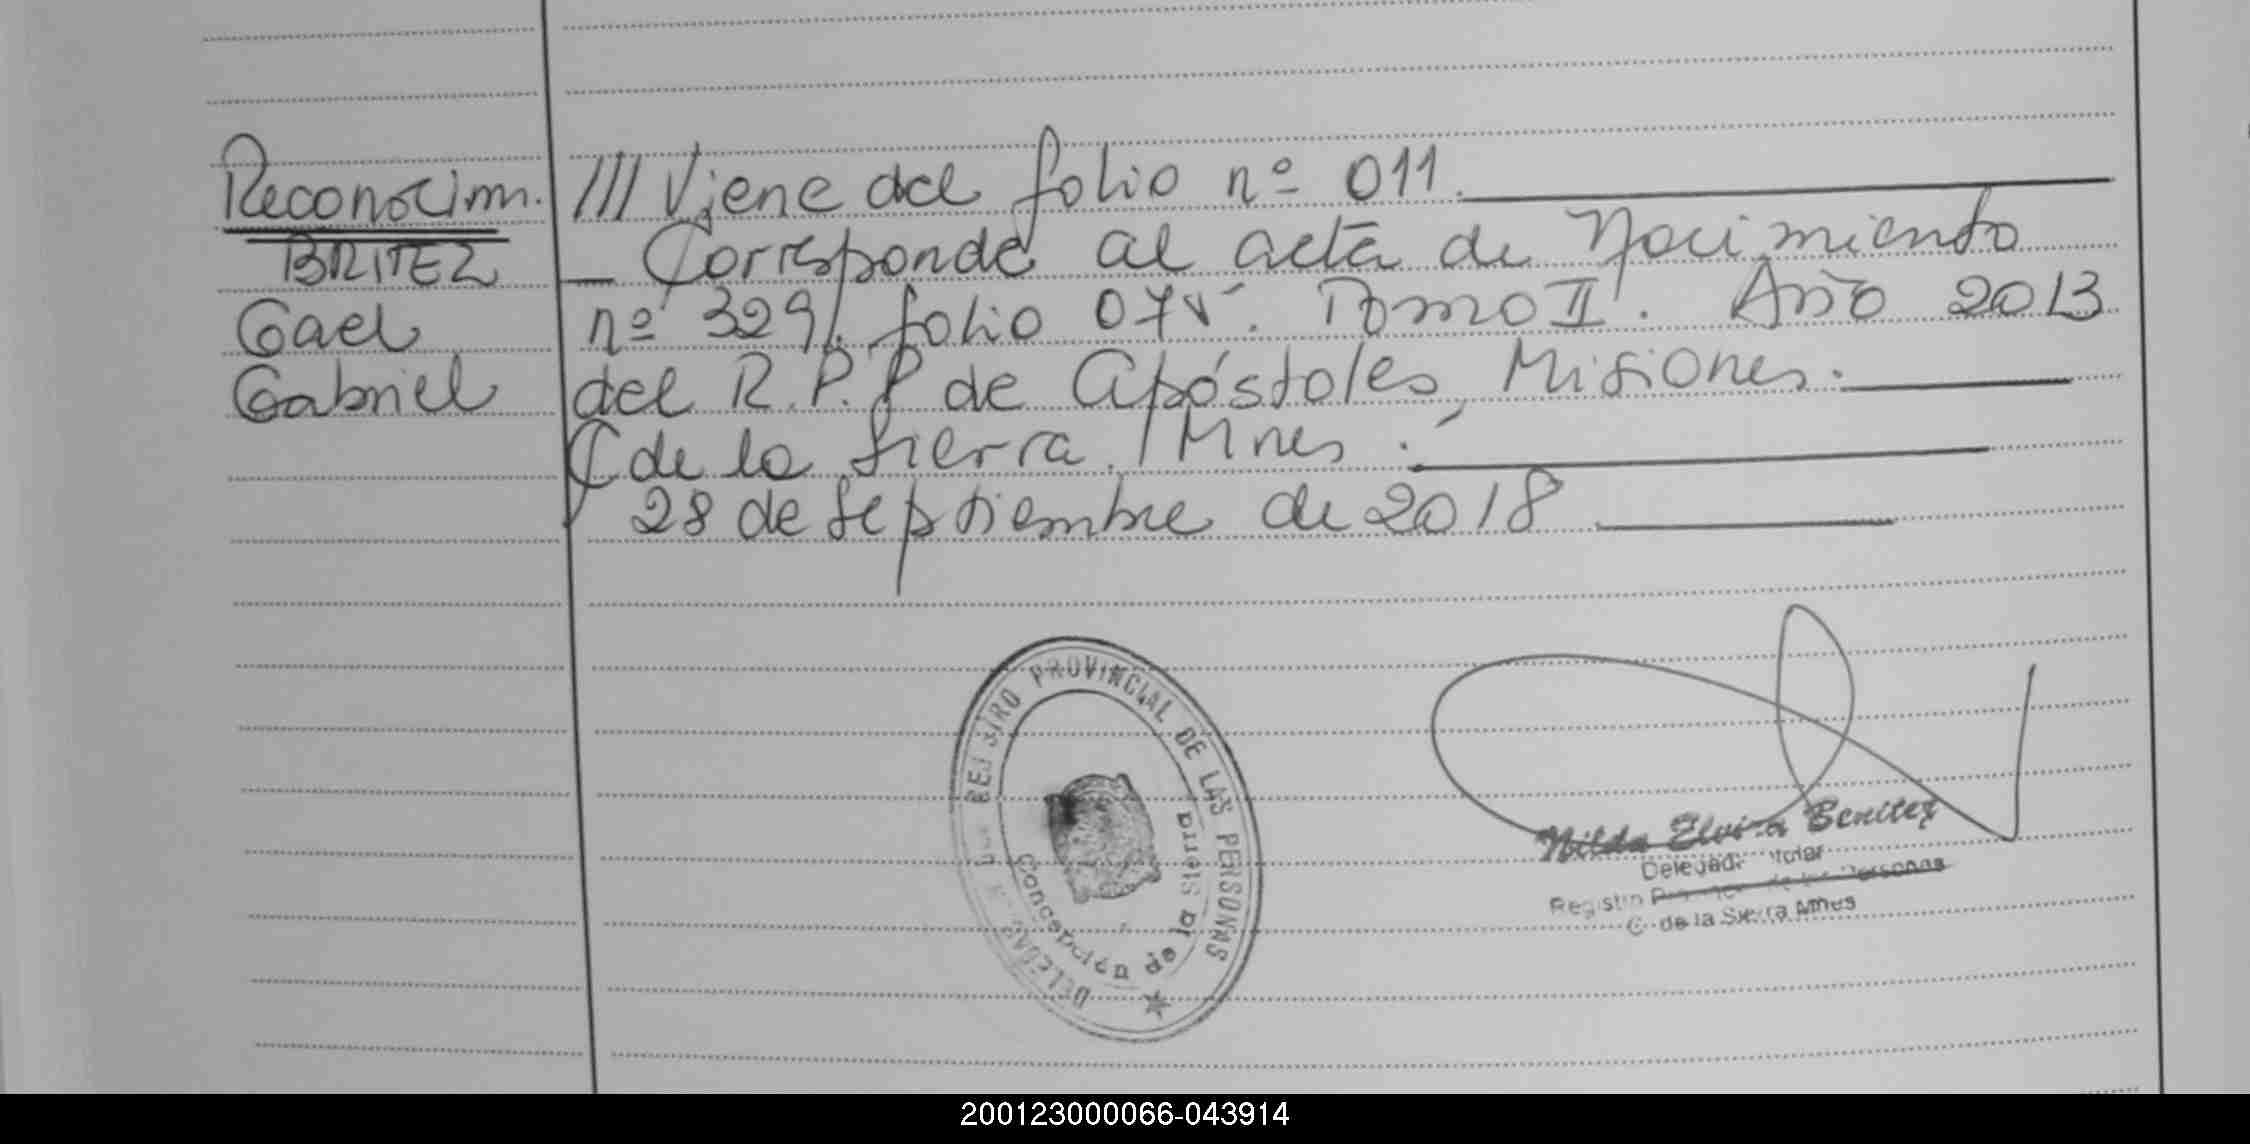 Reconocim.
BRITEZ
Gael
Gabriel
/// Viene del folio nº 011.
_ Corresponde al acta de Nacimiento
nº 329/. folio 07v. Tomo II. Año 2013
del R.P.P de Apóstoles, Misiones.
C de la Sierra, Mnes.
28 de Septiembre de 2018
REGISTRO PROVINCIAL DE LAS PERSONAS
Concepción de la Sierra
Nilda Elvira Benitez
Delegada Titular
Registro de las Personas
C. de la Sierra Mnes
200123000066-043914